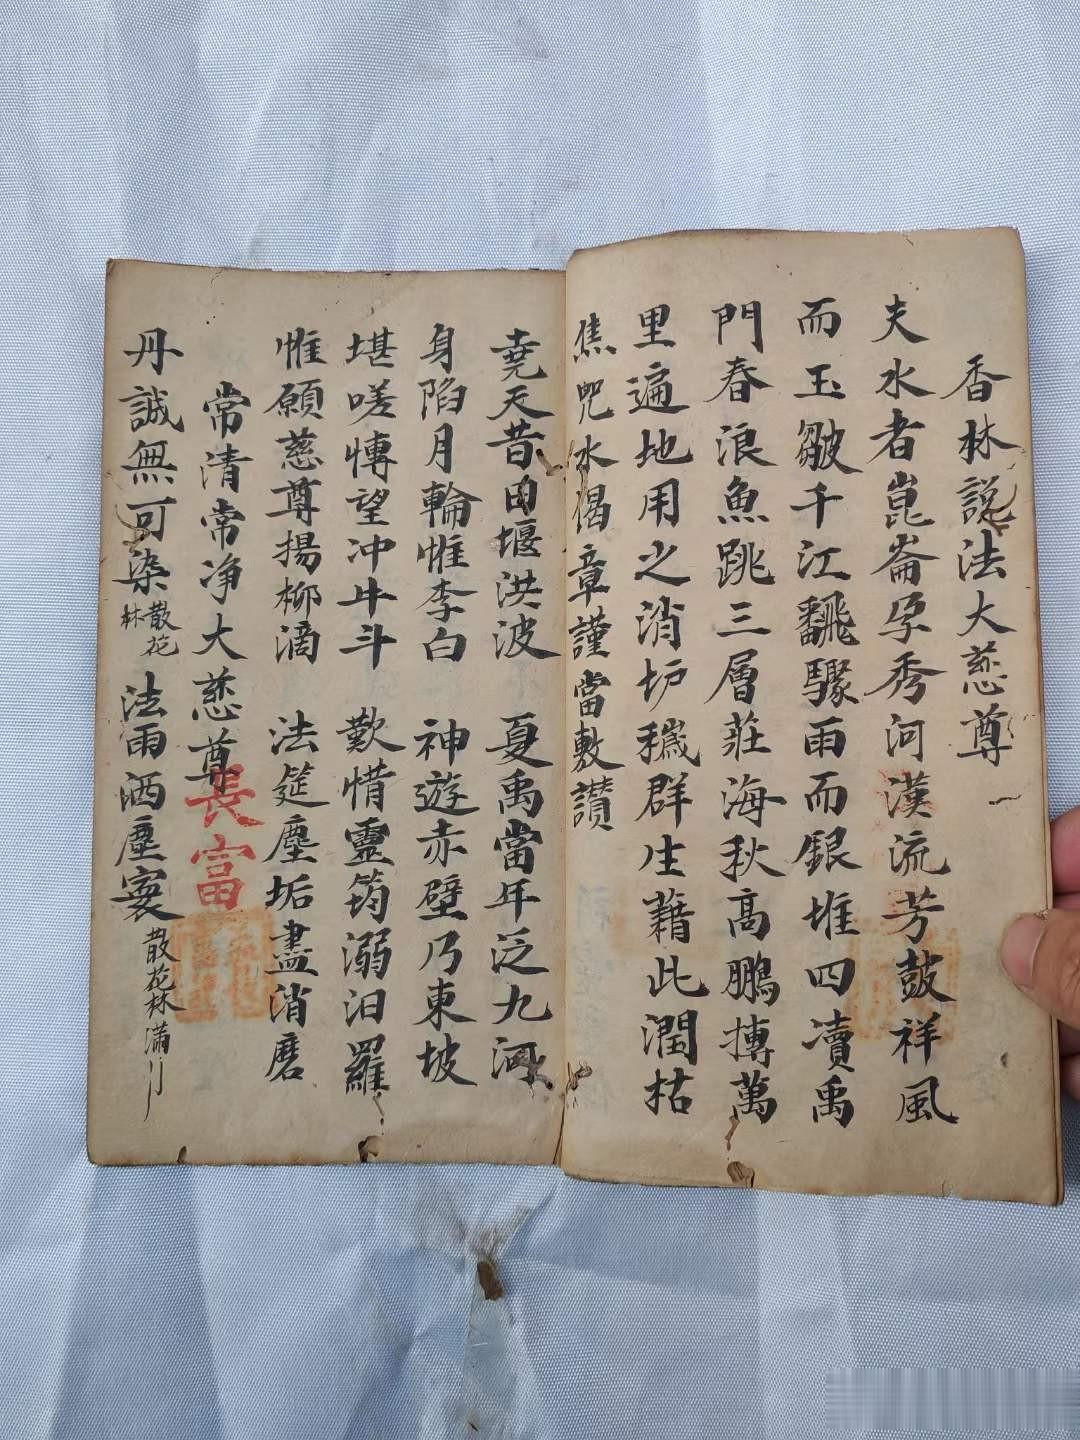 香林說法大慈尊
夫水者崑崙孕秀河漢流芳鼓祥風
而玉皺千江飜驟雨而銀堆四瀆禹
門春浪魚跳三層莊海秋高鵬摶萬
里遍地用之消垆穢群生藉此潤枯
焦咒水偈章謹當敷讃
堯天昔日堰洪波 夏禹當年泛九河
身陷月輪惟李白 神遊赤壁乃東坡
堪嗟慱望冲牛斗 歎惜靈筠溺汨羅
惟願慈尊揚柳滴 法筵塵垢盡消磨
常清常净大慈尊
長富
丹誠無可染散花林 法雨洒塵寰散花林滿